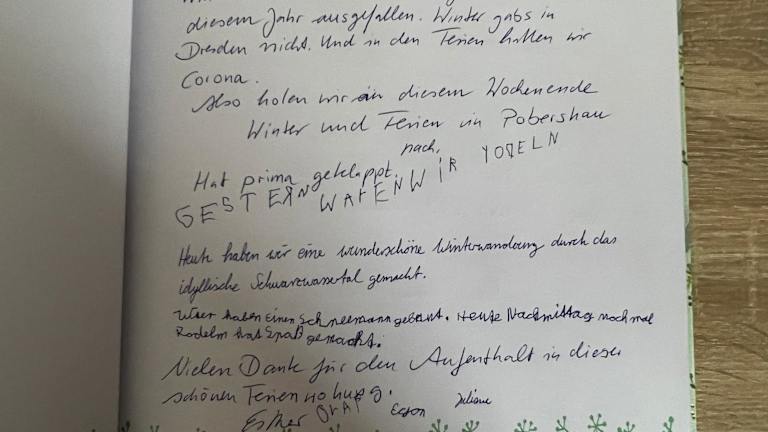 diesem Jahr ausgefallen. Winter gabs in
Dresden nicht. Und in den Ferien hatten wir
Corona.
Also holen wir an diesem Wochenende
Winter und Ferien in Pobershau
nach.
Hat prima geklappt.
GESTERN WAREN WIR YODELN
Heute haben wir eine wunderschöne Winterwanderung durch das
idyllische Schwarzwassertal gemacht.
Wier haben einen Schneemann gebaut. Heute Nachmittag noch mal
Rodelm hat Spaß gemacht.
Vielen Dank für den Aufenthalt in dieser
schönen Ferienwohung.
Esther OLAF Juliane